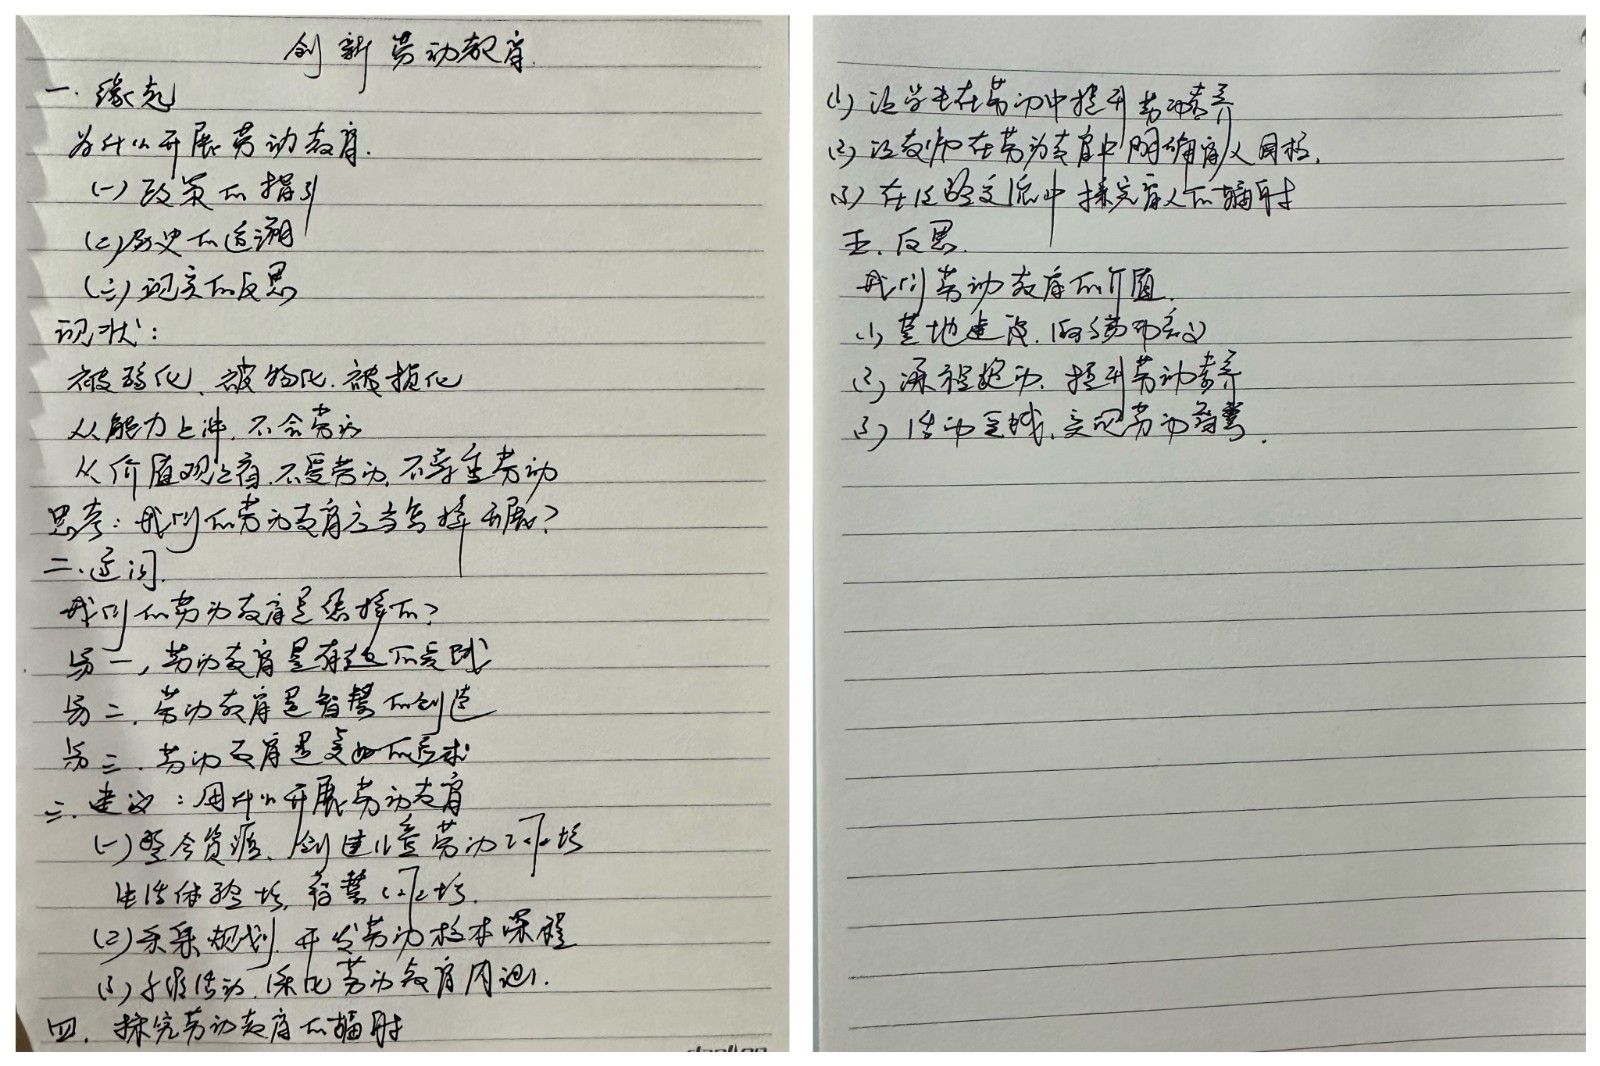 创新劳动教育.
一.缘起
为什么开展劳动教育.
(一)政策的指引
(二)历史的追溯
(三)现实的反思
现状:
被弱化、被物化.被矮化
从能力上讲,不会劳动
从价值观上看.不爱劳动,不尊重劳动
思考:我们的劳动教育应当怎样开展?
二.追问.
我们的劳动教育是怎样的?
场一,劳动教育是有趣的实践
场二.劳动教育是智慧的创造
场三.劳动教育是美好的追求
三.建议:用什么开展劳动教育
(一)整合资源、创建儿童劳动工坊
生活体验坊,智慧工坊.
(2)系统规划.开发劳动校本课程
(3)开展活动.深化劳动教育内涵.
四.探究劳动教育的辐射
(1)让学生在劳动中提升劳动素养
(2)让教师在劳动教育中明确育人目标.
(3)在区域交流中探究育人的辐射
五.反思.
我们劳动教育的价值.
(1)基地建设.
(2)课程驱动.提升劳动素养
(3)活动全域、实现劳动育